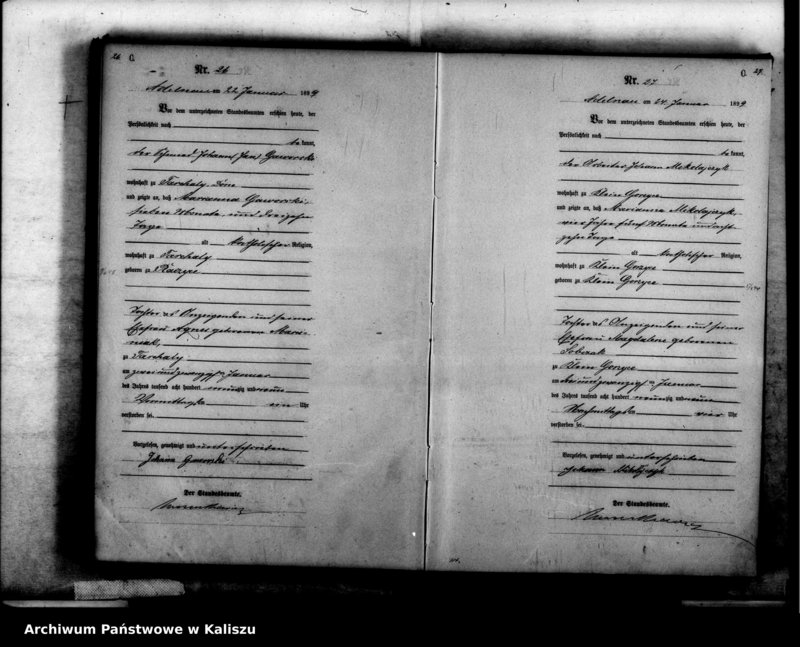 26 C.
Nr. 26
Adelnau am 22. Januar 1899
Vor dem unterzeichneten Standesbeamten erschien heute, der
Persönlichkeit nach
bekannt,
der Johann
wohnhaft zu Tarchaly
und zeigte an, daß Marianna Gaworski,
sieben Monate und dreizehn
Tage
alt katholischer Religion,
wohnhaft zu Tarchaly
geboren zu
Tochter des Anzeigenden und seiner
Ehefrau Agnes geborenen
zu Tarchaly
am zweiundzwanzigsten Januar
des Jahres tausend acht hundert neunzig und neun
Vormittags ein Uhr
verstorben sei.
Vorgelesen, genehmigt und unterschrieben
Johann Gaworski
Der Standesbeamte.
C. 27.
Nr. 27
Adelnau am 24. Januar 1899
Vor dem unterzeichneten Standesbeamten erschien heute, der
Persönlichkeit nach
bekannt,
der Arbeiter Johann Mikolajczyk
wohnhaft zu Klein Gorzyce
und zeigte an, daß Marianna Mikolajczyk,
vier Jahre fünf Monate und acht
zehn Tage
alt katholischer Religion,
wohnhaft zu Klein Gorzyce
geboren zu Klein Gorzyce
Tochter des Anzeigenden und seiner
Ehefrau Magdalene geborenen
Sobczak
zu Klein Gorzyce
am dreiundzwanzigsten Januar
des Jahres tausend acht hundert neunzig und neun
Nachmittags vier Uhr
verstorben sei.
Vorgelesen, genehmigt und unterschrieben
Johann Mikolajczyk
Der Standesbeamte.
Archiwum Państwowe w Kaliszu